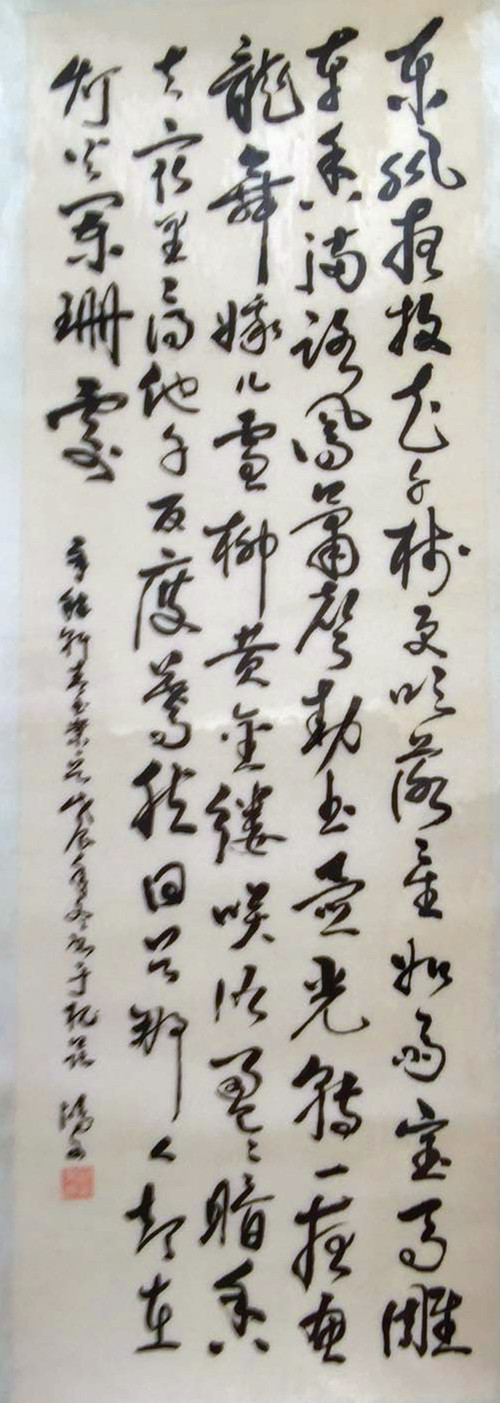 東風夜放花千樹更吹落星如雨寶馬雕
車香滿路鳳簫聲動玉壺光轉一夜魚
龍舞蛾儿雪柳黄金縷笑語盈盈暗香
去衆里尋他千百度驀然回首那人却在
灯火闌珊處
辛稼軒青玉案 戊辰年冬